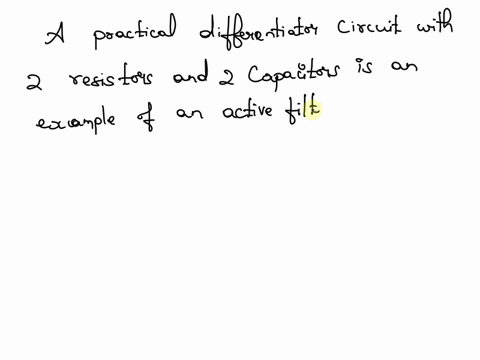 A practical differentiator circuit with
2 resistors and 2 capacitors is an
example of an active filt